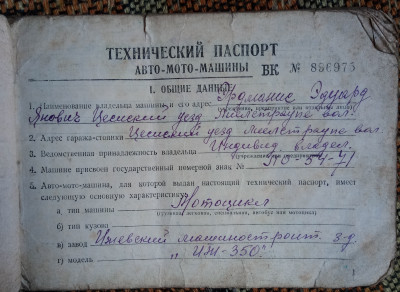 ТЕХНИЧЕСКИЙ ПАСПОРТ
АВТО-МОТО-МАШИНЫ ВК № 896975
I. ОБЩИЕ ДАННЫЕ
1. Наименование владельца машины и его адрес Громанис Эдуард
Янович Цесиский уезд
2. Адрес гаража-стоянки Цесиский уезд
3. Ведомственная принадлежность владельца Индивид. владел.
4. Машине присвоен государственный номерной знак №
5. Авто-мото-машина, для которой выдан настоящий технический паспорт, имеет
следующую основную характеристику:
а) тип машины Мотоцикл
б) тип кузова
в) завод Ижевский машиностроит. з-д
г) модель „ИЖ-350"